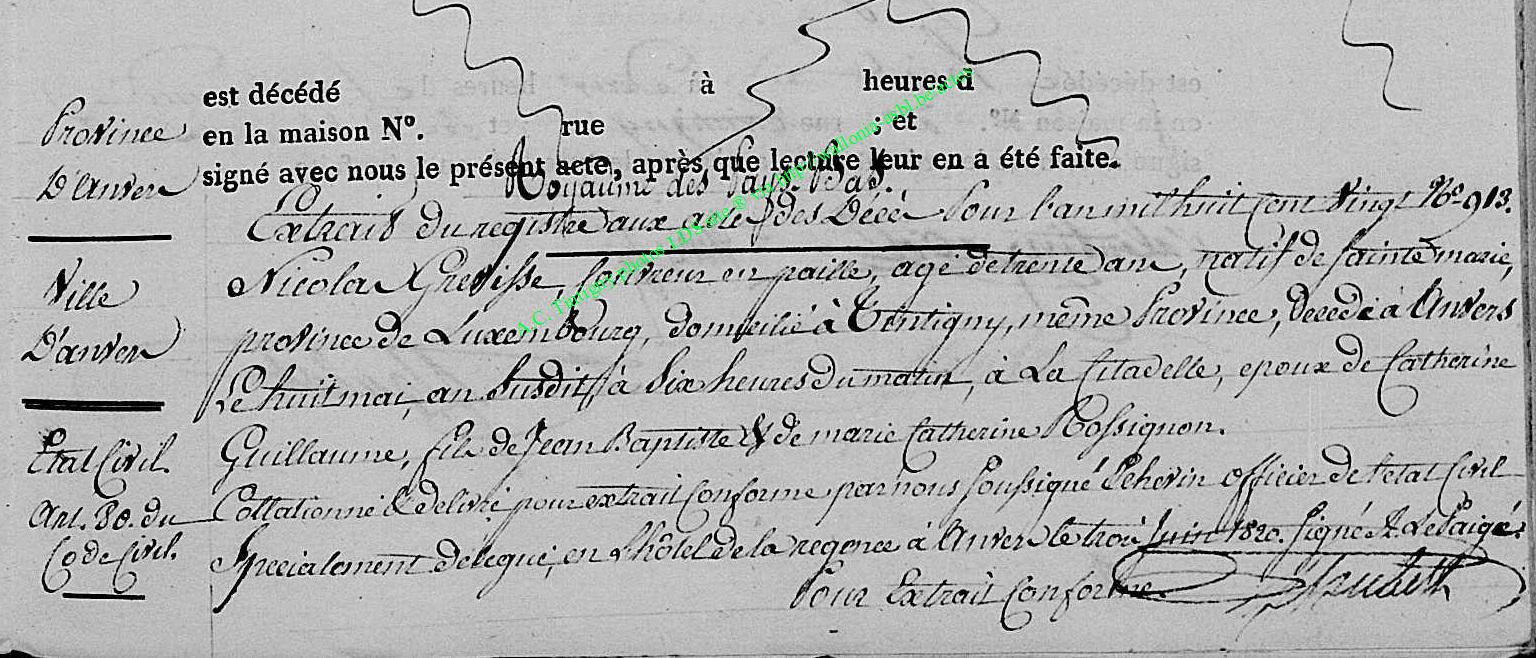 est décédé à heures d
en la maison N°. rue ; et
signé avec nous le présent acte, après que lecture leur en a été faite.
Province
D'anvers
Ville
D'anvers
Etat Civil.
Art. 80. du
Code Civil.
Royaume des Pays-Bas.
Extrait du registre aux actes des Décès pour l'an mil huit cent vingt N° 913.
Nicolas Grevisse, Couvreur en paille, agé de trente ans, natif de sainte marie,
province de Luxembourg, domicilié à Tintigny, même Province, décédé à Anvers
Le huit mai, an susdit, à six heures du matin, à La Citadelle, epoux de Catherine
Guillaume, fils de Jean Baptiste & de marie Catherine Rossignon.
Collationné & delivré pour extrait Conforme par nous soussigné Echevin officier de l'etat Civil
Specialement delegué, en l'hôtel de la regence à Anvers le trois Juin 1820. signé J. LePaige.
Pour Extrait Conforme.
A.C. Tintigny photos LDS site ® via http://wallonia-asbl.be actes